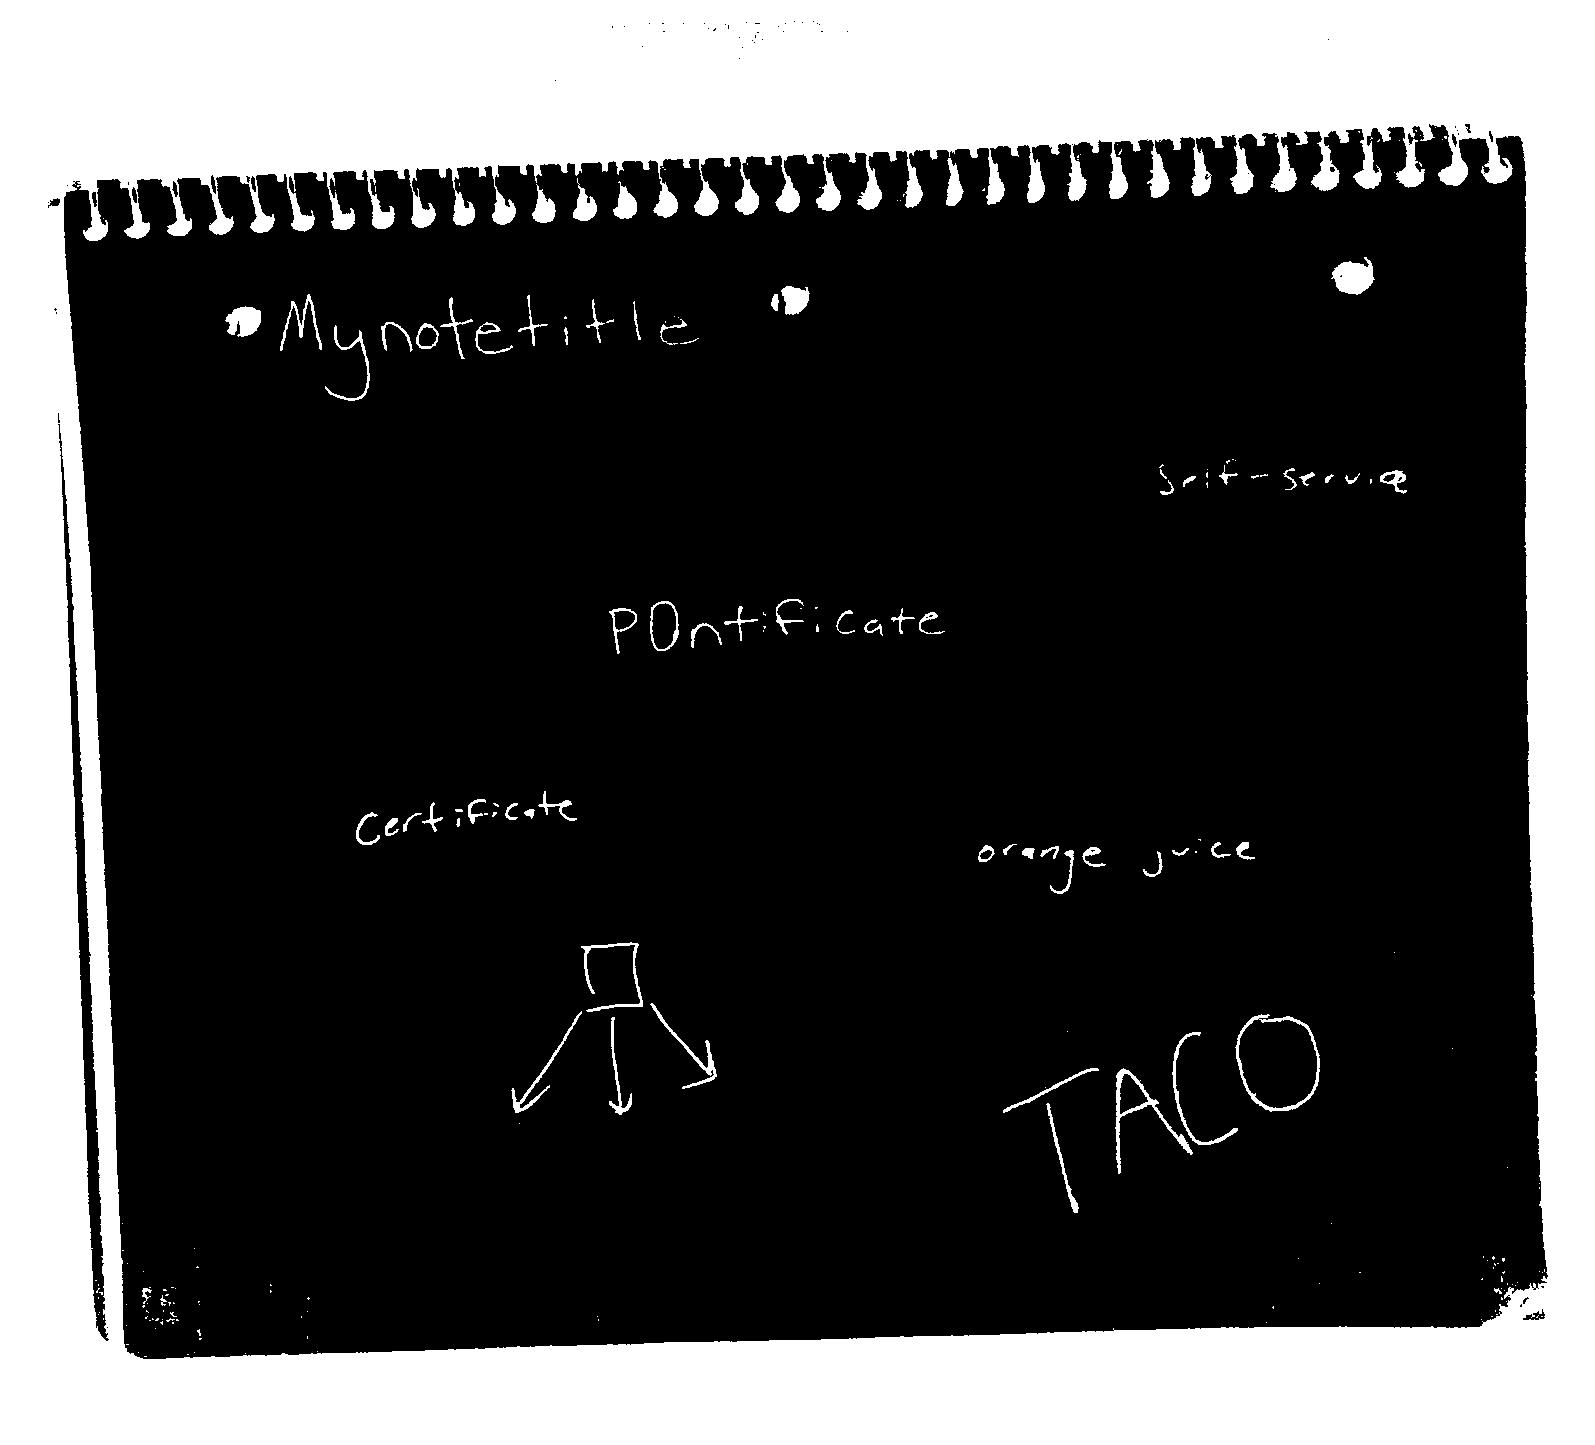 Mynotetitle
self-service
POntificate
Certificate
orange juice
TACO